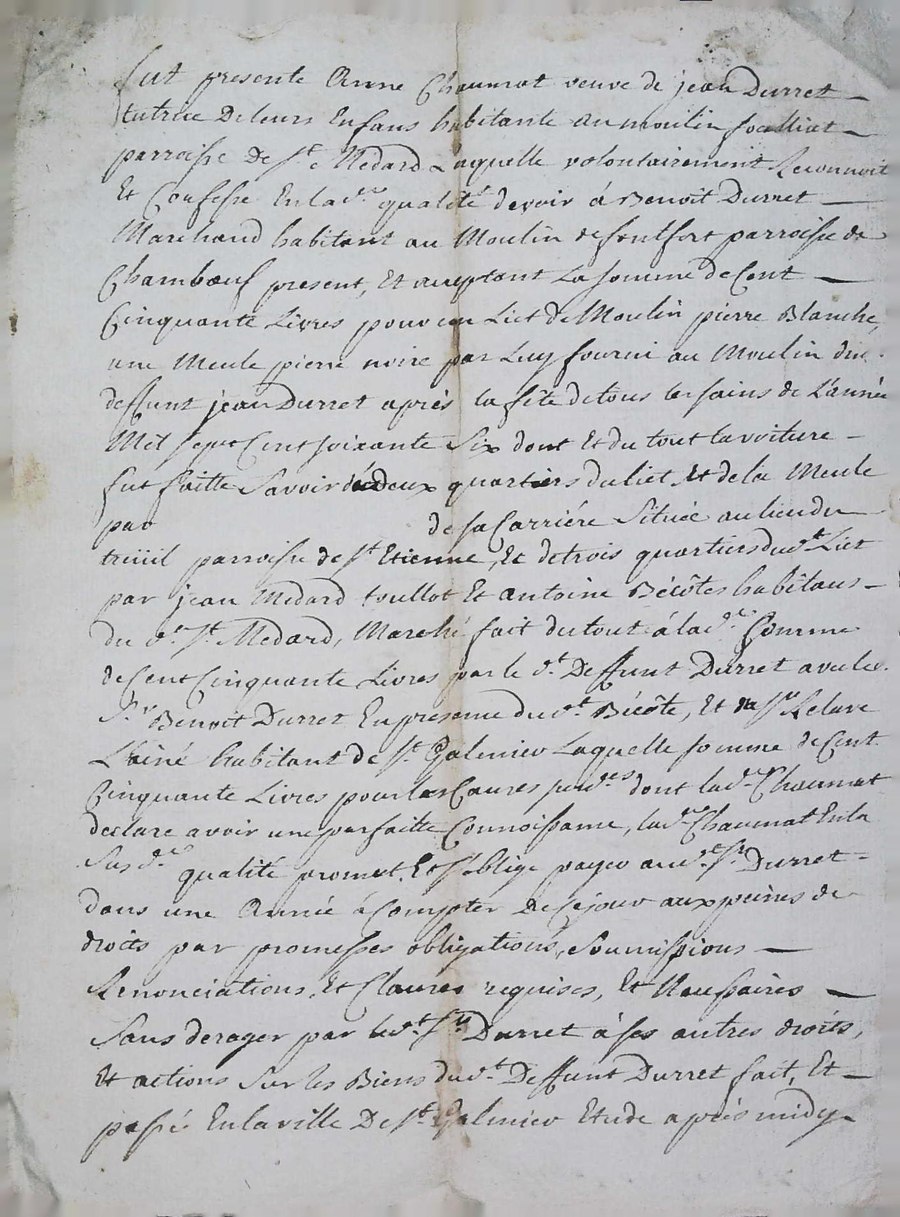 fut presente Anne Chaumat veuve de jean Durret
tutrice De leurs Enfans habitante au moulin
parroisse de St Medard Laquelle volontairement Reconnoit
Et Confesse En lad.e qualité devoir à Benoit Durret
Marchand habitant au Moulin de fontfort parroisse de
Chambœuf present, Et acceptant La somme de Cent
Cinquante Livres pour un Liet de Moulin pierre Blanche,
une Meule pierre noire par Luy fourni au Moulin dud.
deffunt jean Durret après la fête de tous les sains de L'année
Mil sept Cent soixante Six dont Et du tout la voiture
fut faitte Savoir de deux quartiers du liet, Et de la Meule
par de sa Carriére Située au lieu du
treüil parroisse de St Etienne, Et de trois quartiers dud.t Liet
par jean Medard toullot Et antoine Bécôtes habitans
du d. St Medard, Marché fait du tout à lad.e Comme
de Cent Cinquante Livres par le d.t Deffunt Durret avec led.
S.r Benoit Durret En presence dud.t Bécôte, Et
L'ainé habitant de St Galmier Laquelle somme de Cent
Cinquante Livres pour les Causes susd.es dont lad.e Chaumat
declare avoir une parfaitte Connoissance, lad.e Chaumat En la
Sus d.e qualité promet, Et s'oblige payer aud.t S.r Durret
dans une Année à Compter De Ce jour aux peines de
droits par promesses obligations, Soumissions
Renonciations, Et Clauses requises, Et Necessaires
Sans deroger par led.t S.r Durret à ses autres droits,
Et actions Sur les Biens dud.t Deffunt Durret fait, Et
passé En la ville De St Galmier Etude après midy